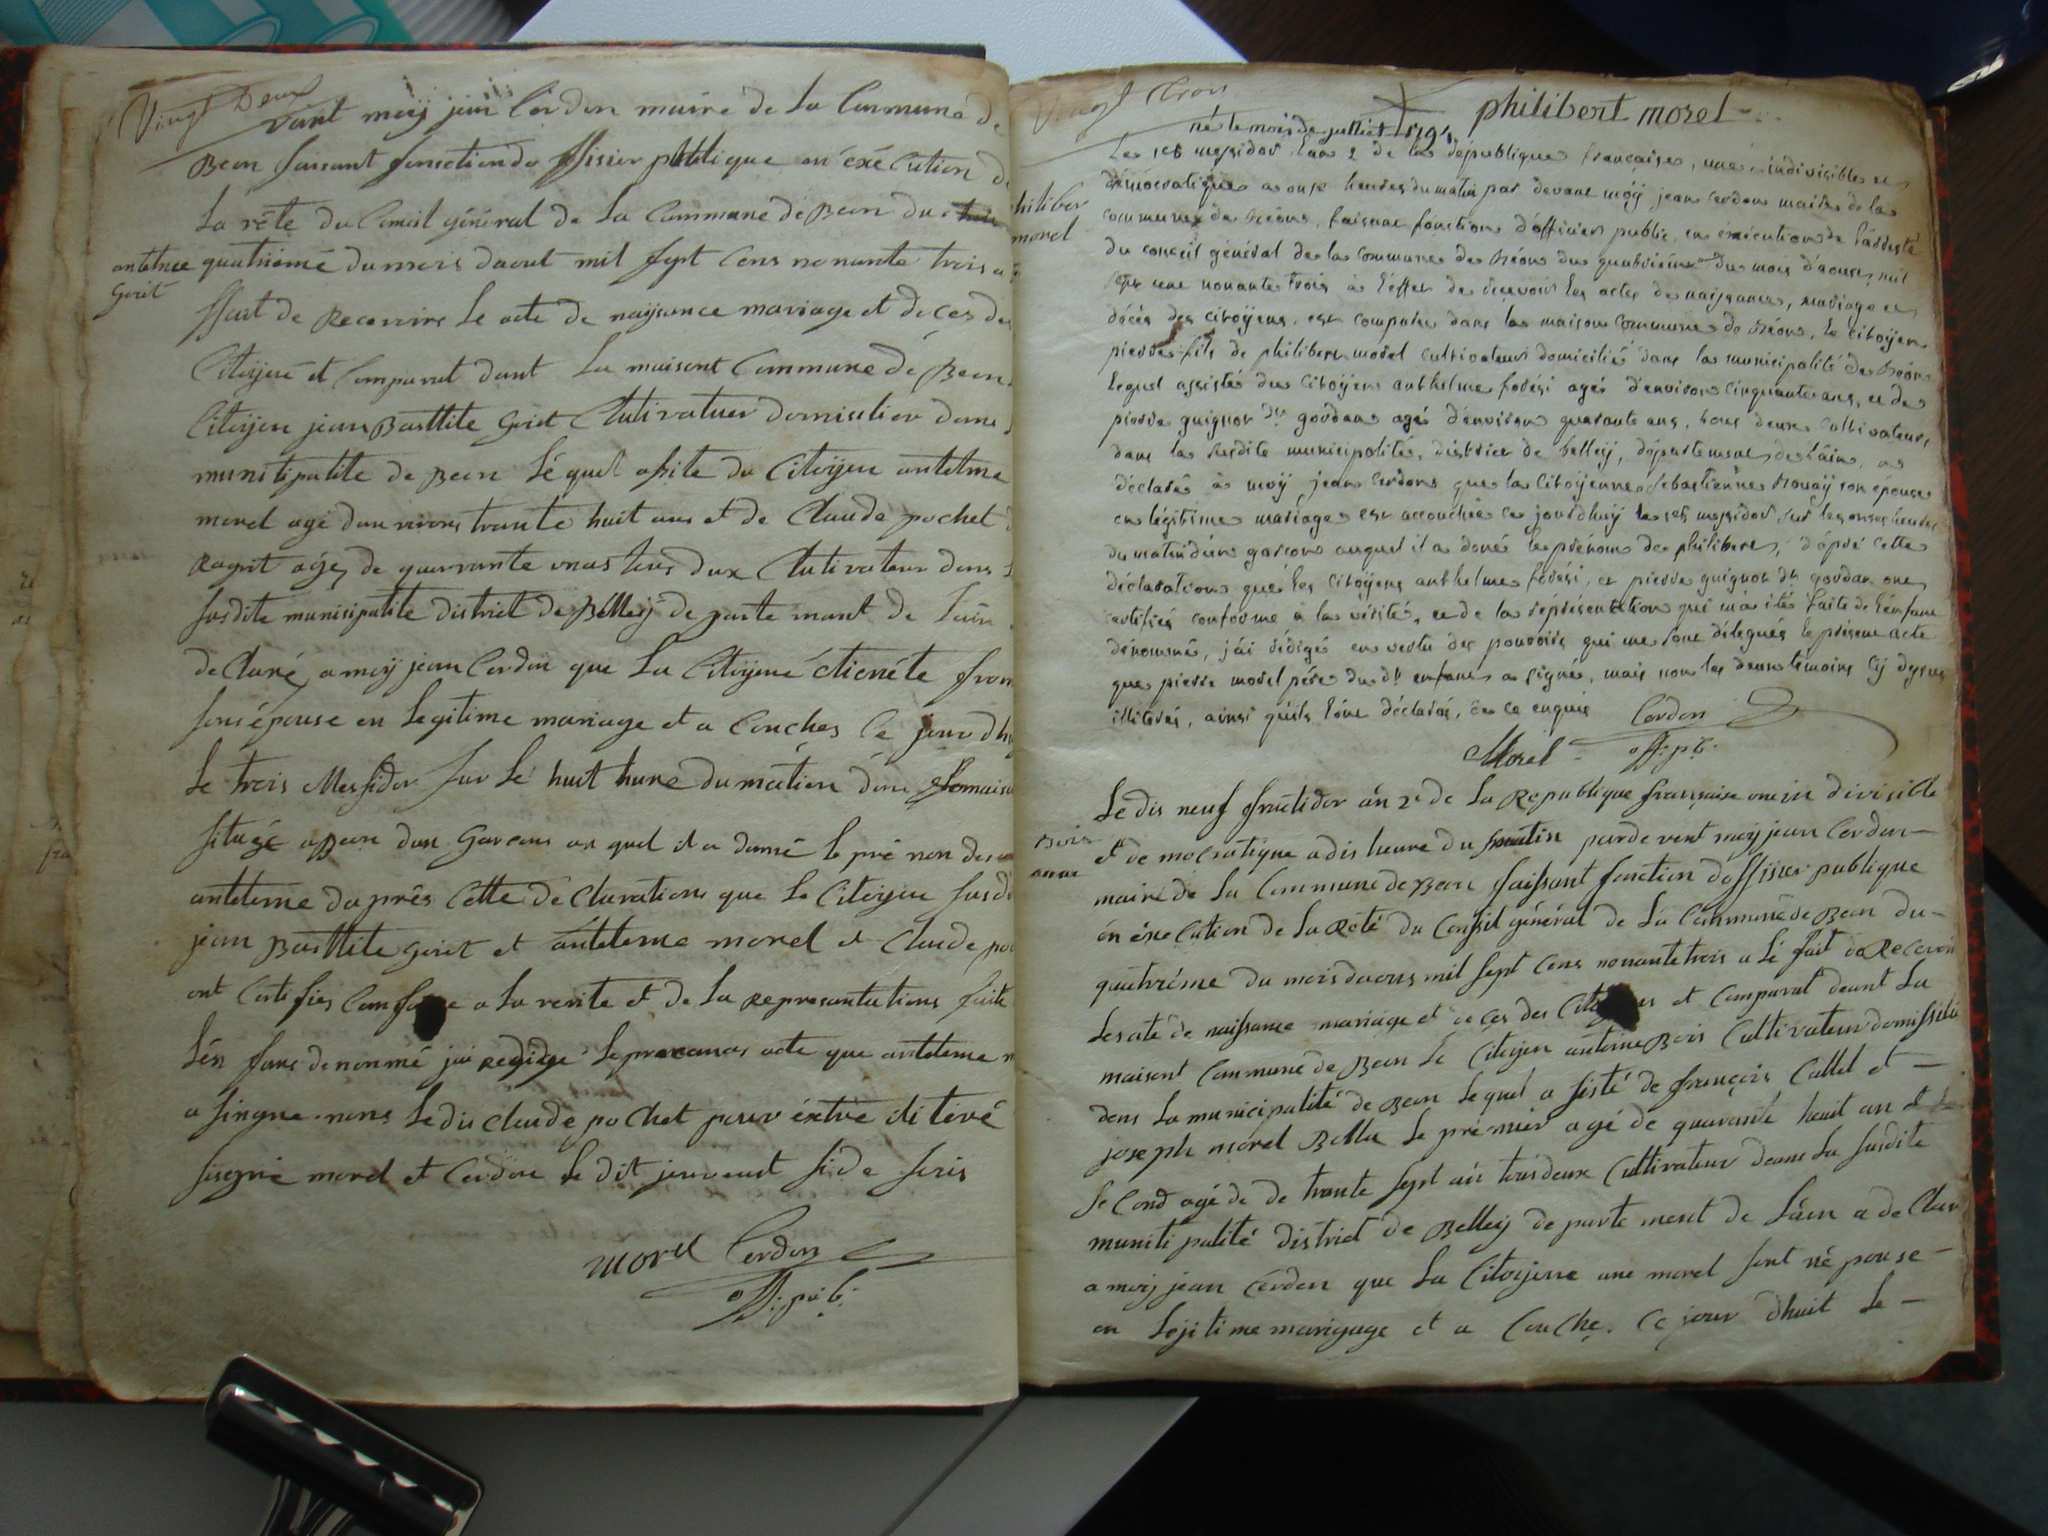 Vingt Deux
vant moÿ jean Cordon maire de La Commune de
Beon faisant fonsction do ffisier plublique en éxécution de
La rété du Conseil général de La Commune de Beon du
antelme
Goiet
quatrieme du mois daout mil sept Cens nonante trois a
ffait de Recevoire Le acte de naÿsance mariage et de ces des
Citoÿens et Comparut dant La maisont Commune de Beon
Citoÿen jean Basttite Goiet Clutivatuer domisilier dans
munitipalite de Beon Lé quel assite du Citoÿen antelme
morel agé danviron trante huit ans et de Claude pochet
agés de quarante tous dux Clutivateur dans
susdite munisipalite district de Belleÿ de parte mant de Lain
de Claré a moÿ jean Cordon que La Citoÿene étienéte
son épouse en Legitime mariage et a Couches Ce jour dhuy
Le trois Messidor sur Le huit hure du mation dans
situsé a Beon dun Garcons au quel il a donné Le pré non de
antelme da prês Cette de Claration que Le Citoÿen susdi
jean Basttite Goiet et antelme morel et Claude po
ont Certifies Conforme a La verite et de La Representations faite
Lén fans de nonmé jai Redidge Le acte que antelme
a singne nons Le di Claude pochet pour éxtre ilitéré
sisegnié morel et Cordon Le dit jour
morel Cordon
off: pub:
Vingt trois
philibert morel
né le mois de juilliet 1794
philiber
morel
Le 1er messidor L'an 2 de la République française, une, indivisible et
démocratique a onse heures du matin par devant moÿ, jean cordon maire de la
commune de Béon, faisant fonction d'officier public, en exécution de l'arresté
du conseil général de la commune de Béon du quatrième du mois d'aoust mil
sept cent nonante trois à l'effet de recevoir les actes de naissance, mariage et
décés des citoÿens, est comparu dans la maison commune de Béon, le citoÿen
pierre fils de philibert morel cultivateur domicilié dans la municipalité de Béon
lequel assisté du citoÿen anthelme agé d'environ cinquante ans, et de
pierre guignot dit goudan agé d'environ quarante ans, tous deux cultivateurs
dans la susdite municipalité, district de belleÿ, département de L'ain, a
déclaré à moÿ jean cordon que la citoÿenne Sébastienne son épouse
en légitime mariage est accouchée ce jourdhuÿ le 1er messidor sur les onse heures
du matin d'un garçon auquel il a doné le prénom de philibert, d'apré cette
déclaration que les citoÿens anthelme et pierre guignot dit goudan ont
certifiés conforme à la vérité, et de la réprésentation qui m'a été faite de l'enfant
dénommé, j'ai rédigé en vertu des pouvoirs qui me sont délégués le présent acte
que pierre morel père du dt enfant a signé, mais non les deux témoins
illiterés, ainsi qu'ils l'ont déclaré, de ce enquis
Cordon
Morel off: pub:
Bois
anne
Le dis neuf ffructidor án 2e de La Republique franssaise une in divisible
et de mocratique a dis heure du matin parde vent moÿ jean Cordon
maire de La Commune de Beon ffaissant fonction doffisier publique
én éxeCution de La Rété du Consil général de La Commune de Beon du
quatriéme du mois daous mil sept Cens nonante trois a Lé fait de Recevoir
Les acte de naissanse mariage et de Ces des Citoyens et Comparut deant La
maisont Commune de Beon Le Citoÿen antoine Bois Cultivateur domissilié
dens La municipalité de Beon Le quel a sisté de françois Callet et
joseph morel Bella Le premier agé de quarante huit an et le
se Cond agé de trante sept an tous deux Cultivateur deans La susdite
muniti palité district de Belleÿ de parte ment de Láin a de Clar
a moÿ jean Cordon que La Citoÿene ane morel sont né pouse
en Lejitime mariyage et a Couche. Ce jour dhuit Le